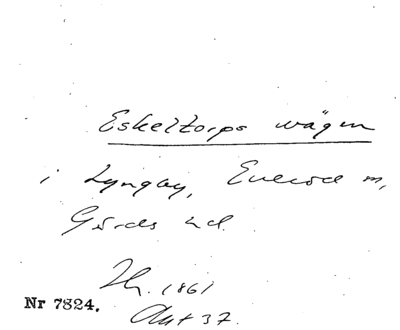 Eskeltorps wägen
i Lyngby, Everöd m,
Gärds hd.
Th. 1861
Akt 37.
Nr 7824.